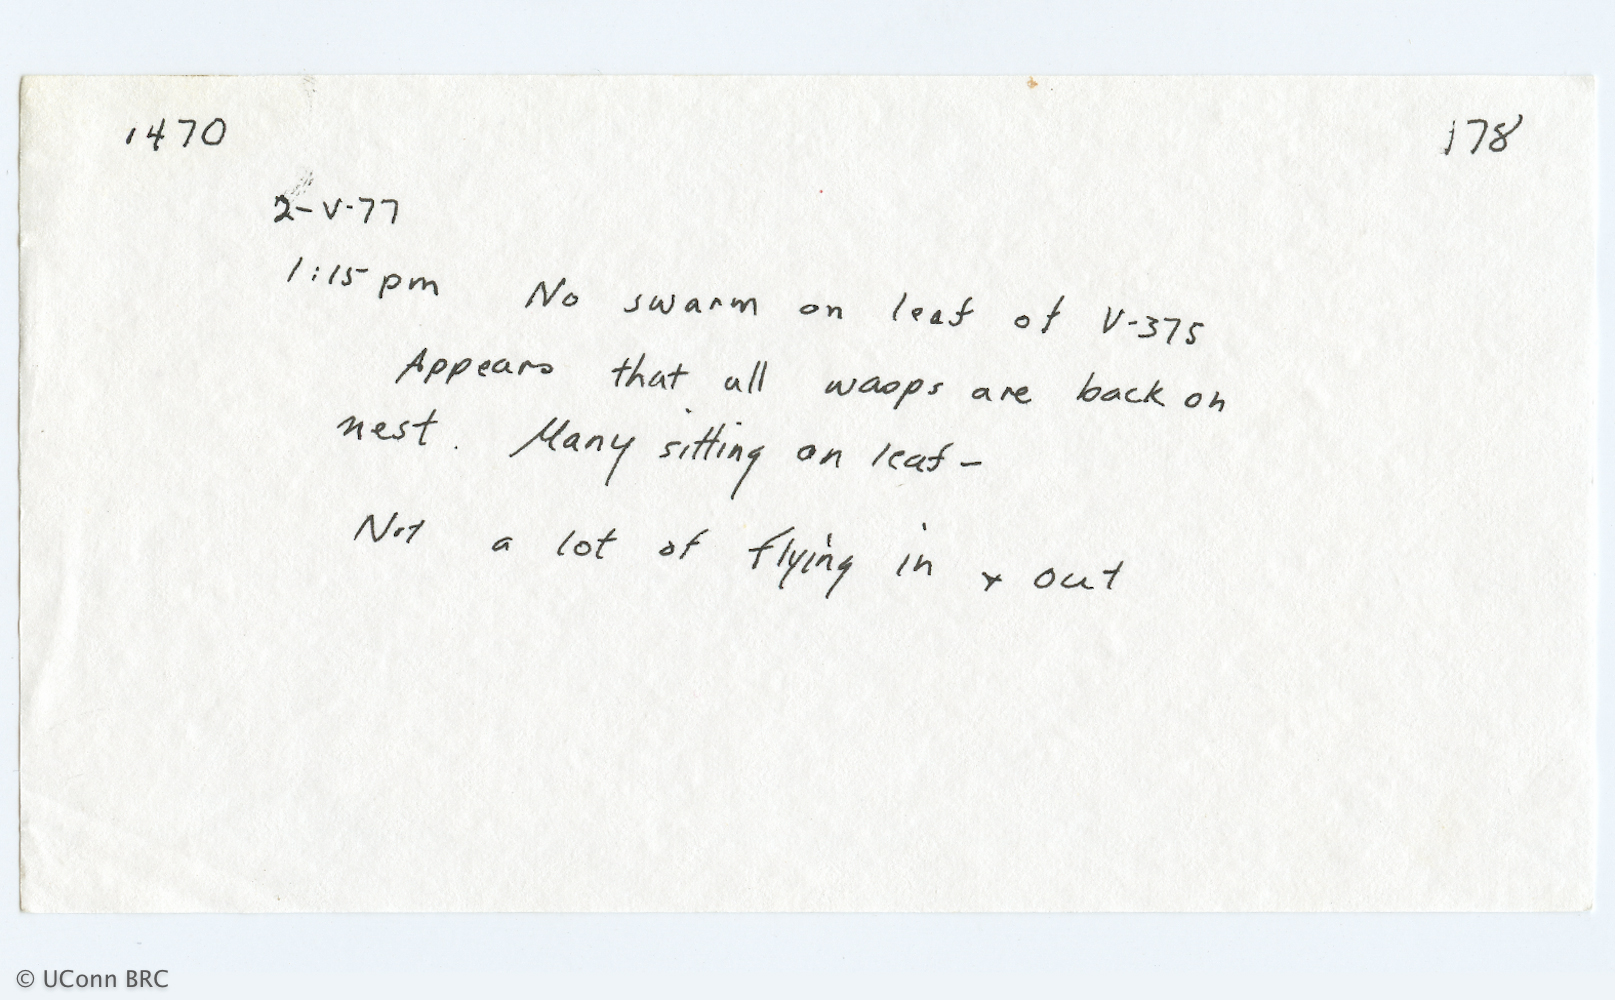 1470
178
2-V-77
1:15 pm No swarm on leaf of V-375
Appears that all wasps are back on
nest. Many sitting on leaf -
Not a lot of flying in + out
© UConn BRC